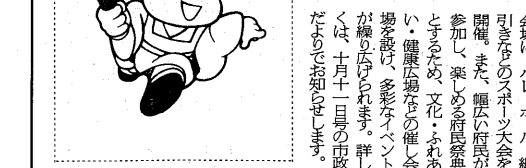 引きなどのスポーツ大会を
開催。また、幅広い府民が
参加し、楽しめる府民祭典
とするため、文化・ふれあ
い・健康広場などの催し会
場を設け、多彩なイベント
が繰り広げられます。詳し
くは、十月十一日号の市政
だよりでお知らせします。